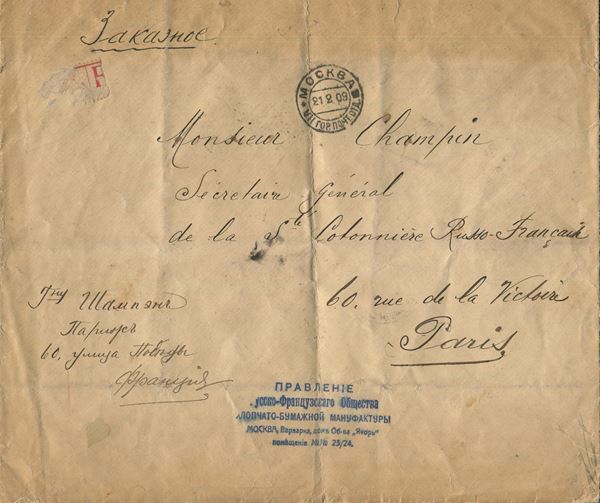 Заказное
R
МОСКВА
21 2 09
ГОР. ПОЧТ. ОТД.
Monsieur Champin
Sécretaire Général
de la Sté Cotonnière Russo-Français
60, rue de la Victoire
Paris
Гну Шампэнъ
Парижъ
60, улица Побѣды
Франція
ПРАВЛЕНІЕ
усско-Французскаго Общества
ЛОПЧАТО-БУМАЖНОЙ МАНУФАКТУРЫ
МОСКВА, Варварка, домъ Об-ва „Якорь"
помѣщеніе №№ 23/24.